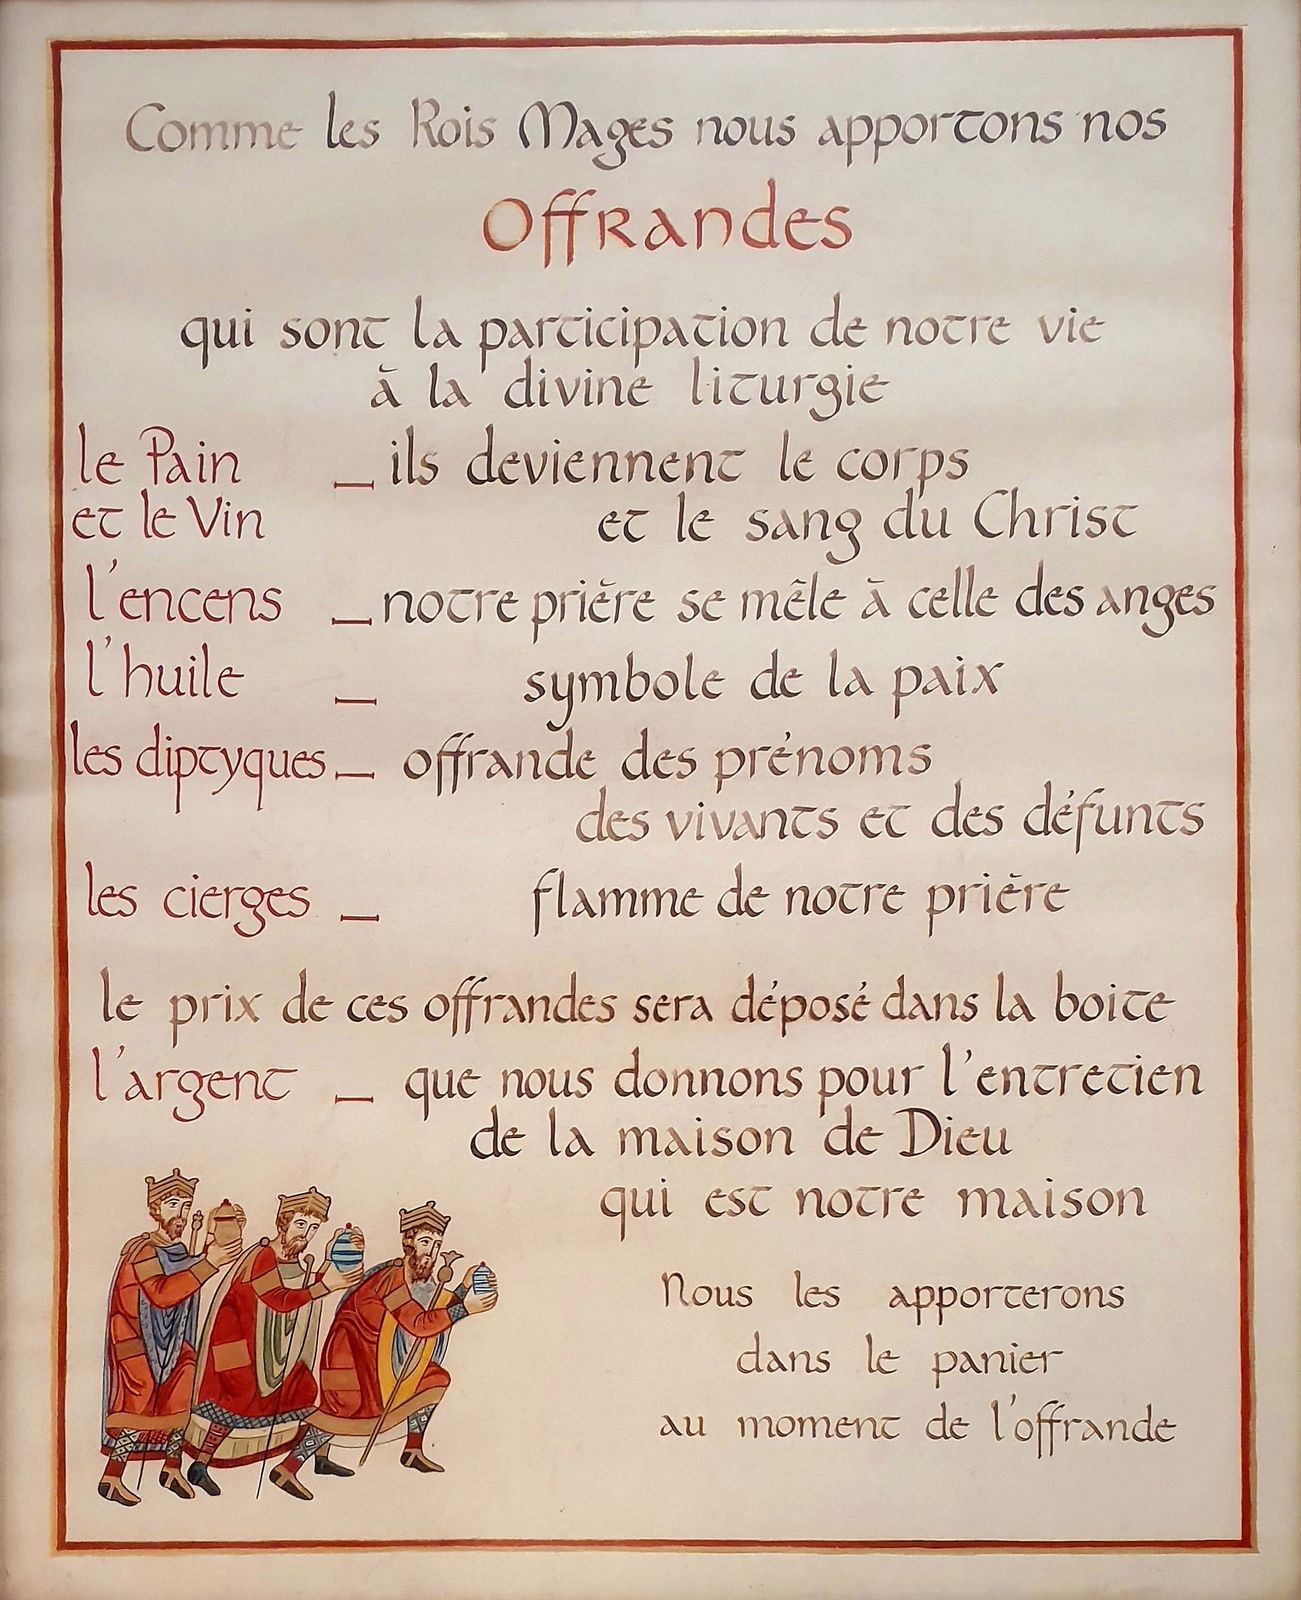 Comme les Rois Mages nous apportons nos
Offrandes
qui sont la participation de notre vie
à la divine liturgie
le Pain _ ils deviennent le corps
et le Vin et le sang du Christ
l'encens _ notre prière se mêle à celle des anges
l'huile _ symbole de la paix
les diptyques _ offrande des prénoms
des vivants et des défunts
les cierges _ flamme de notre prière
le prix de ces offrandes sera déposé dans la boite
l'argent _ que nous donnons pour l'entretien
de la maison de Dieu
qui est notre maison
Nous les apporterons
dans le panier
au moment de l'offrande